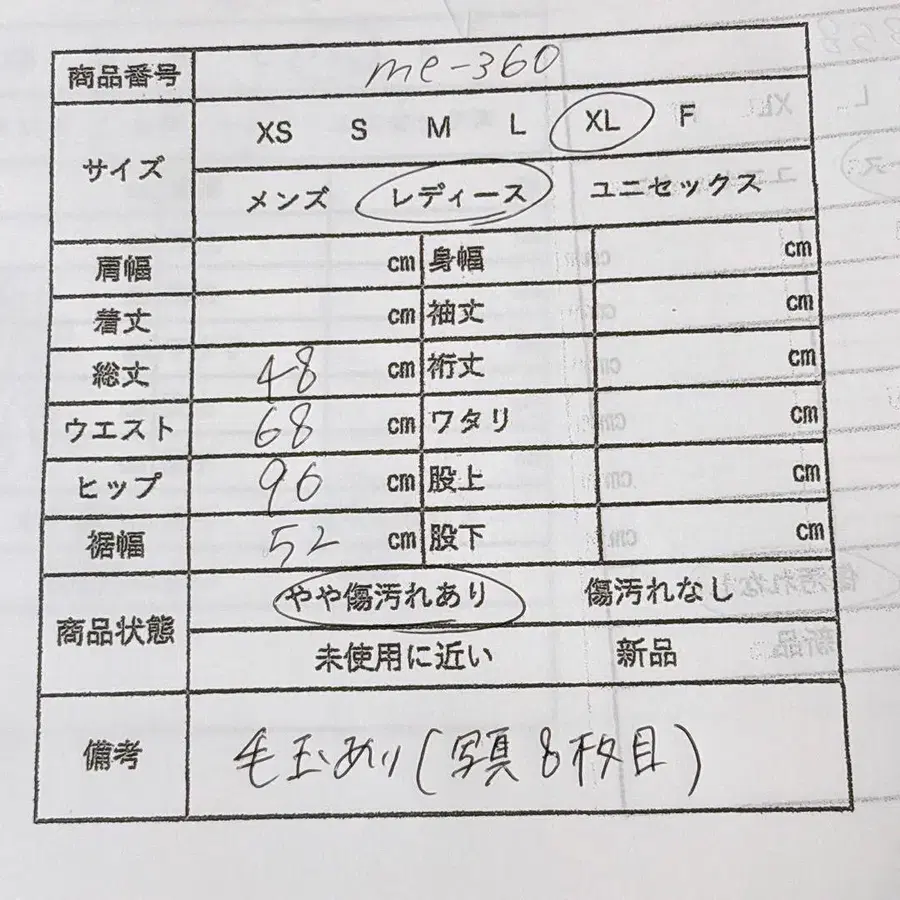 商品番号 me-360
サイズ XS S M L XL F
メンズ レディース ユニセックス
肩幅 cm 身幅 cm
着丈 cm 袖丈 cm
総丈 48 cm 裄丈 cm
ウエスト 68 cm ワタリ cm
ヒップ 96 cm 股上 cm
裾幅 52 cm 股下 cm
商品状態 やや傷汚れあり 傷汚れなし
未使用に近い 新品
備考 毛玉あり(写真8枚目)